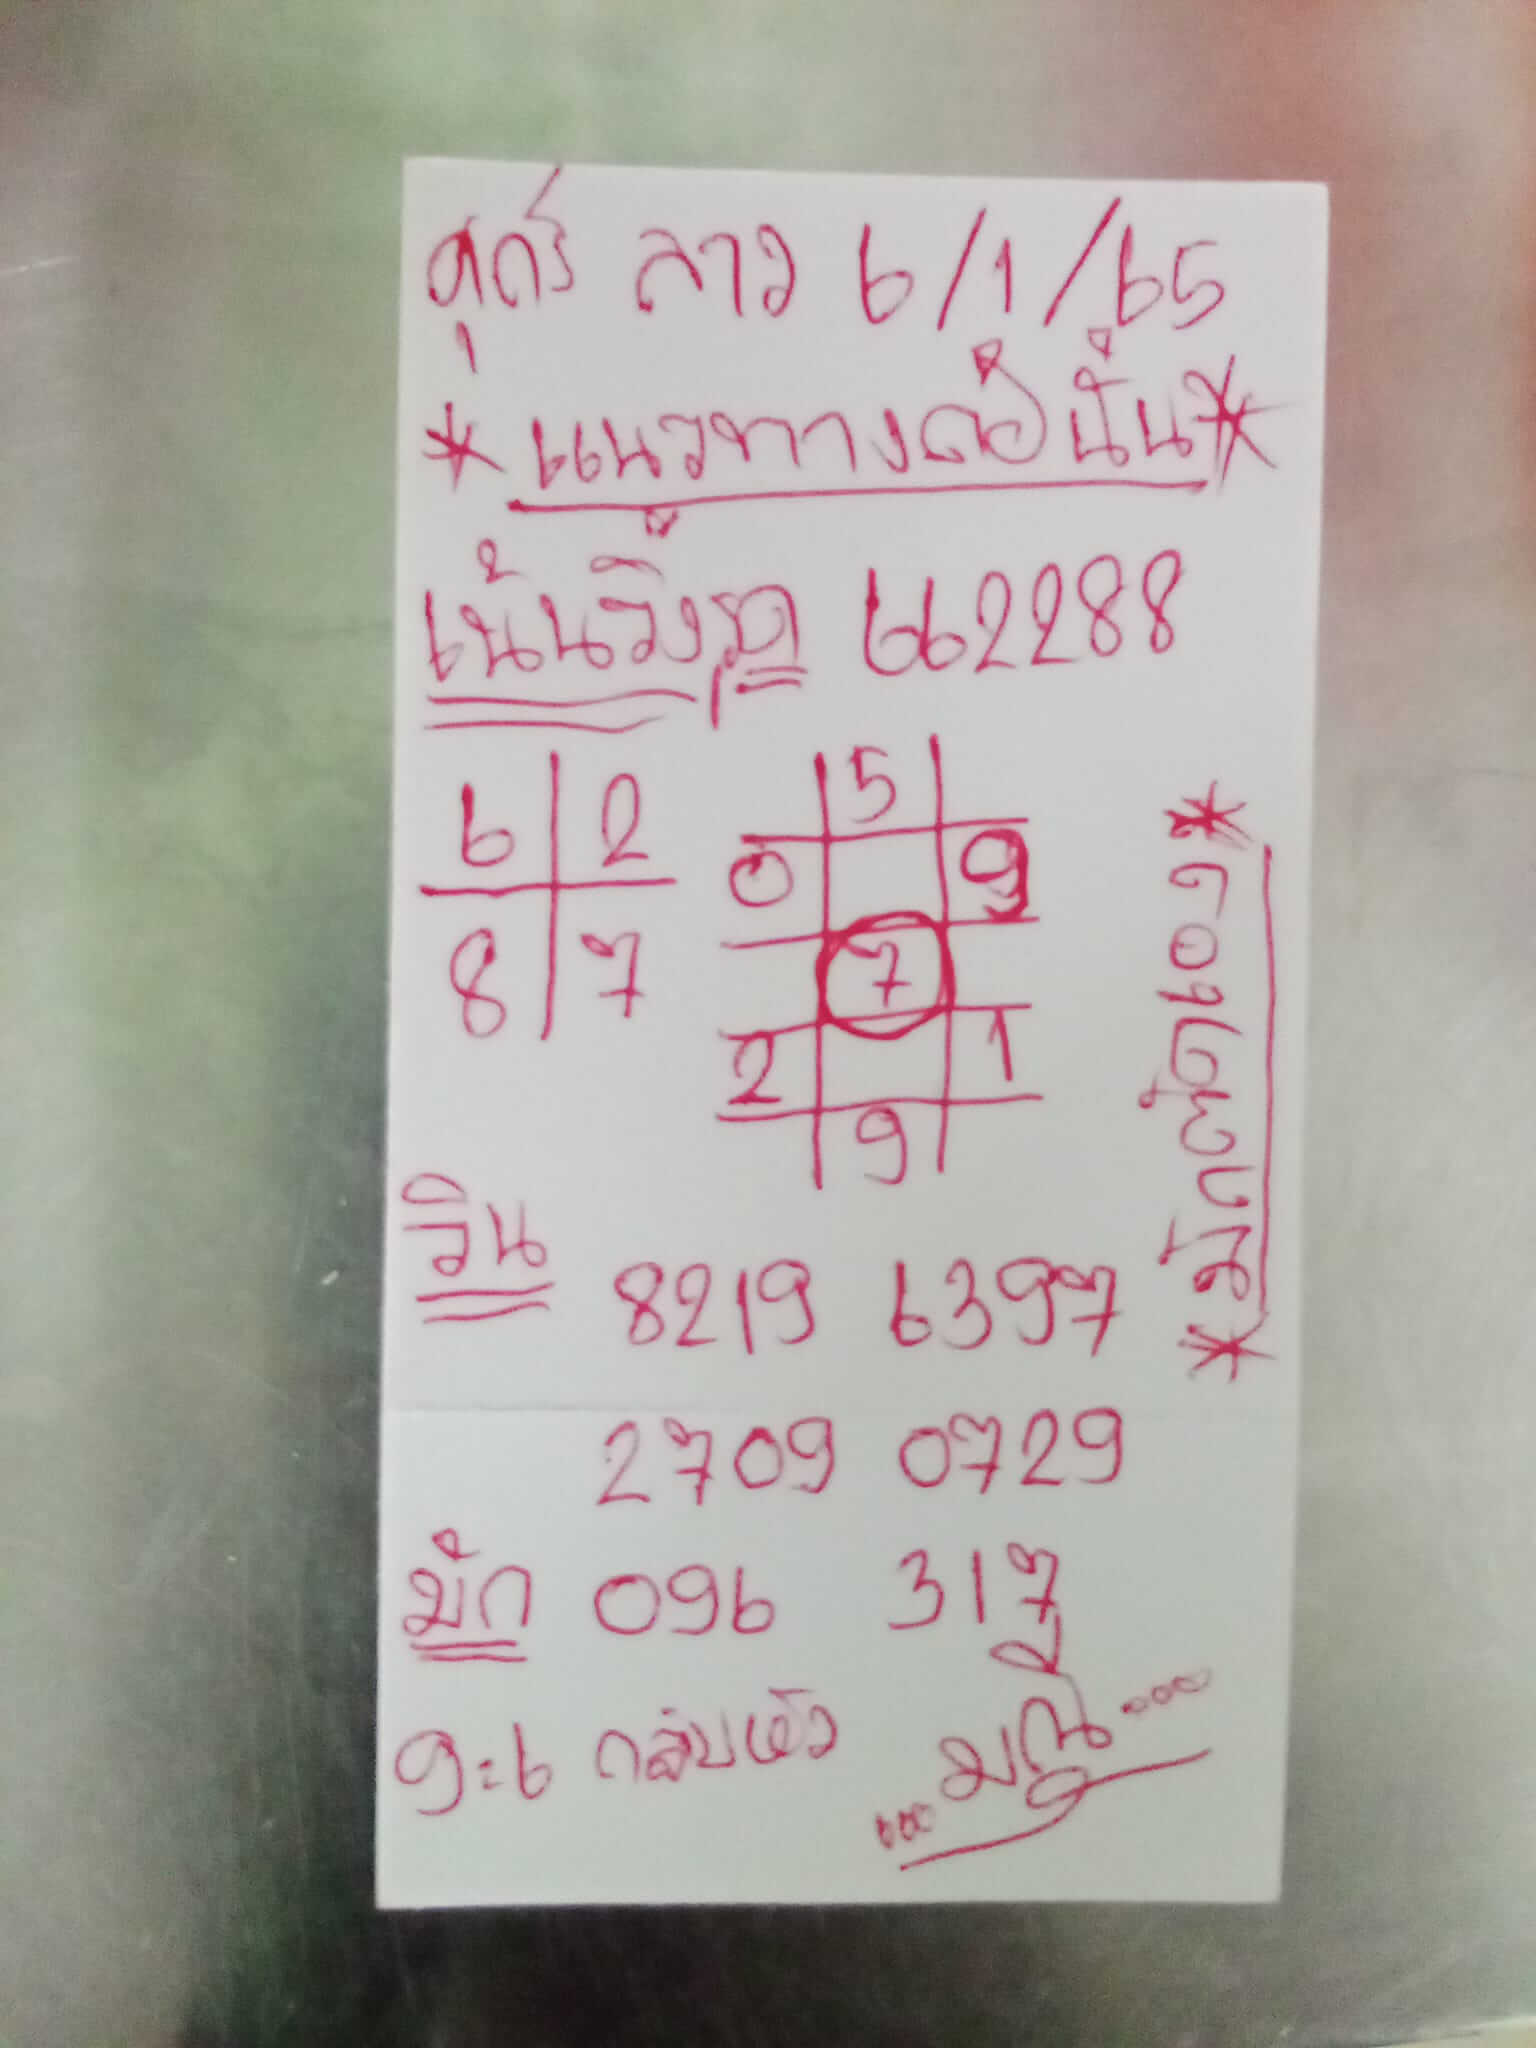 ศุกร์ ลาว 6/1/65
* แนวทางคือนั่น *
เน้นวิ่งรูด 662288
6 2
8 7
5
0 9
7
2 1
9
วิน
8219 6397
2709 0729
ปัก 096 317
9=6 กลับหัว
...มณี...